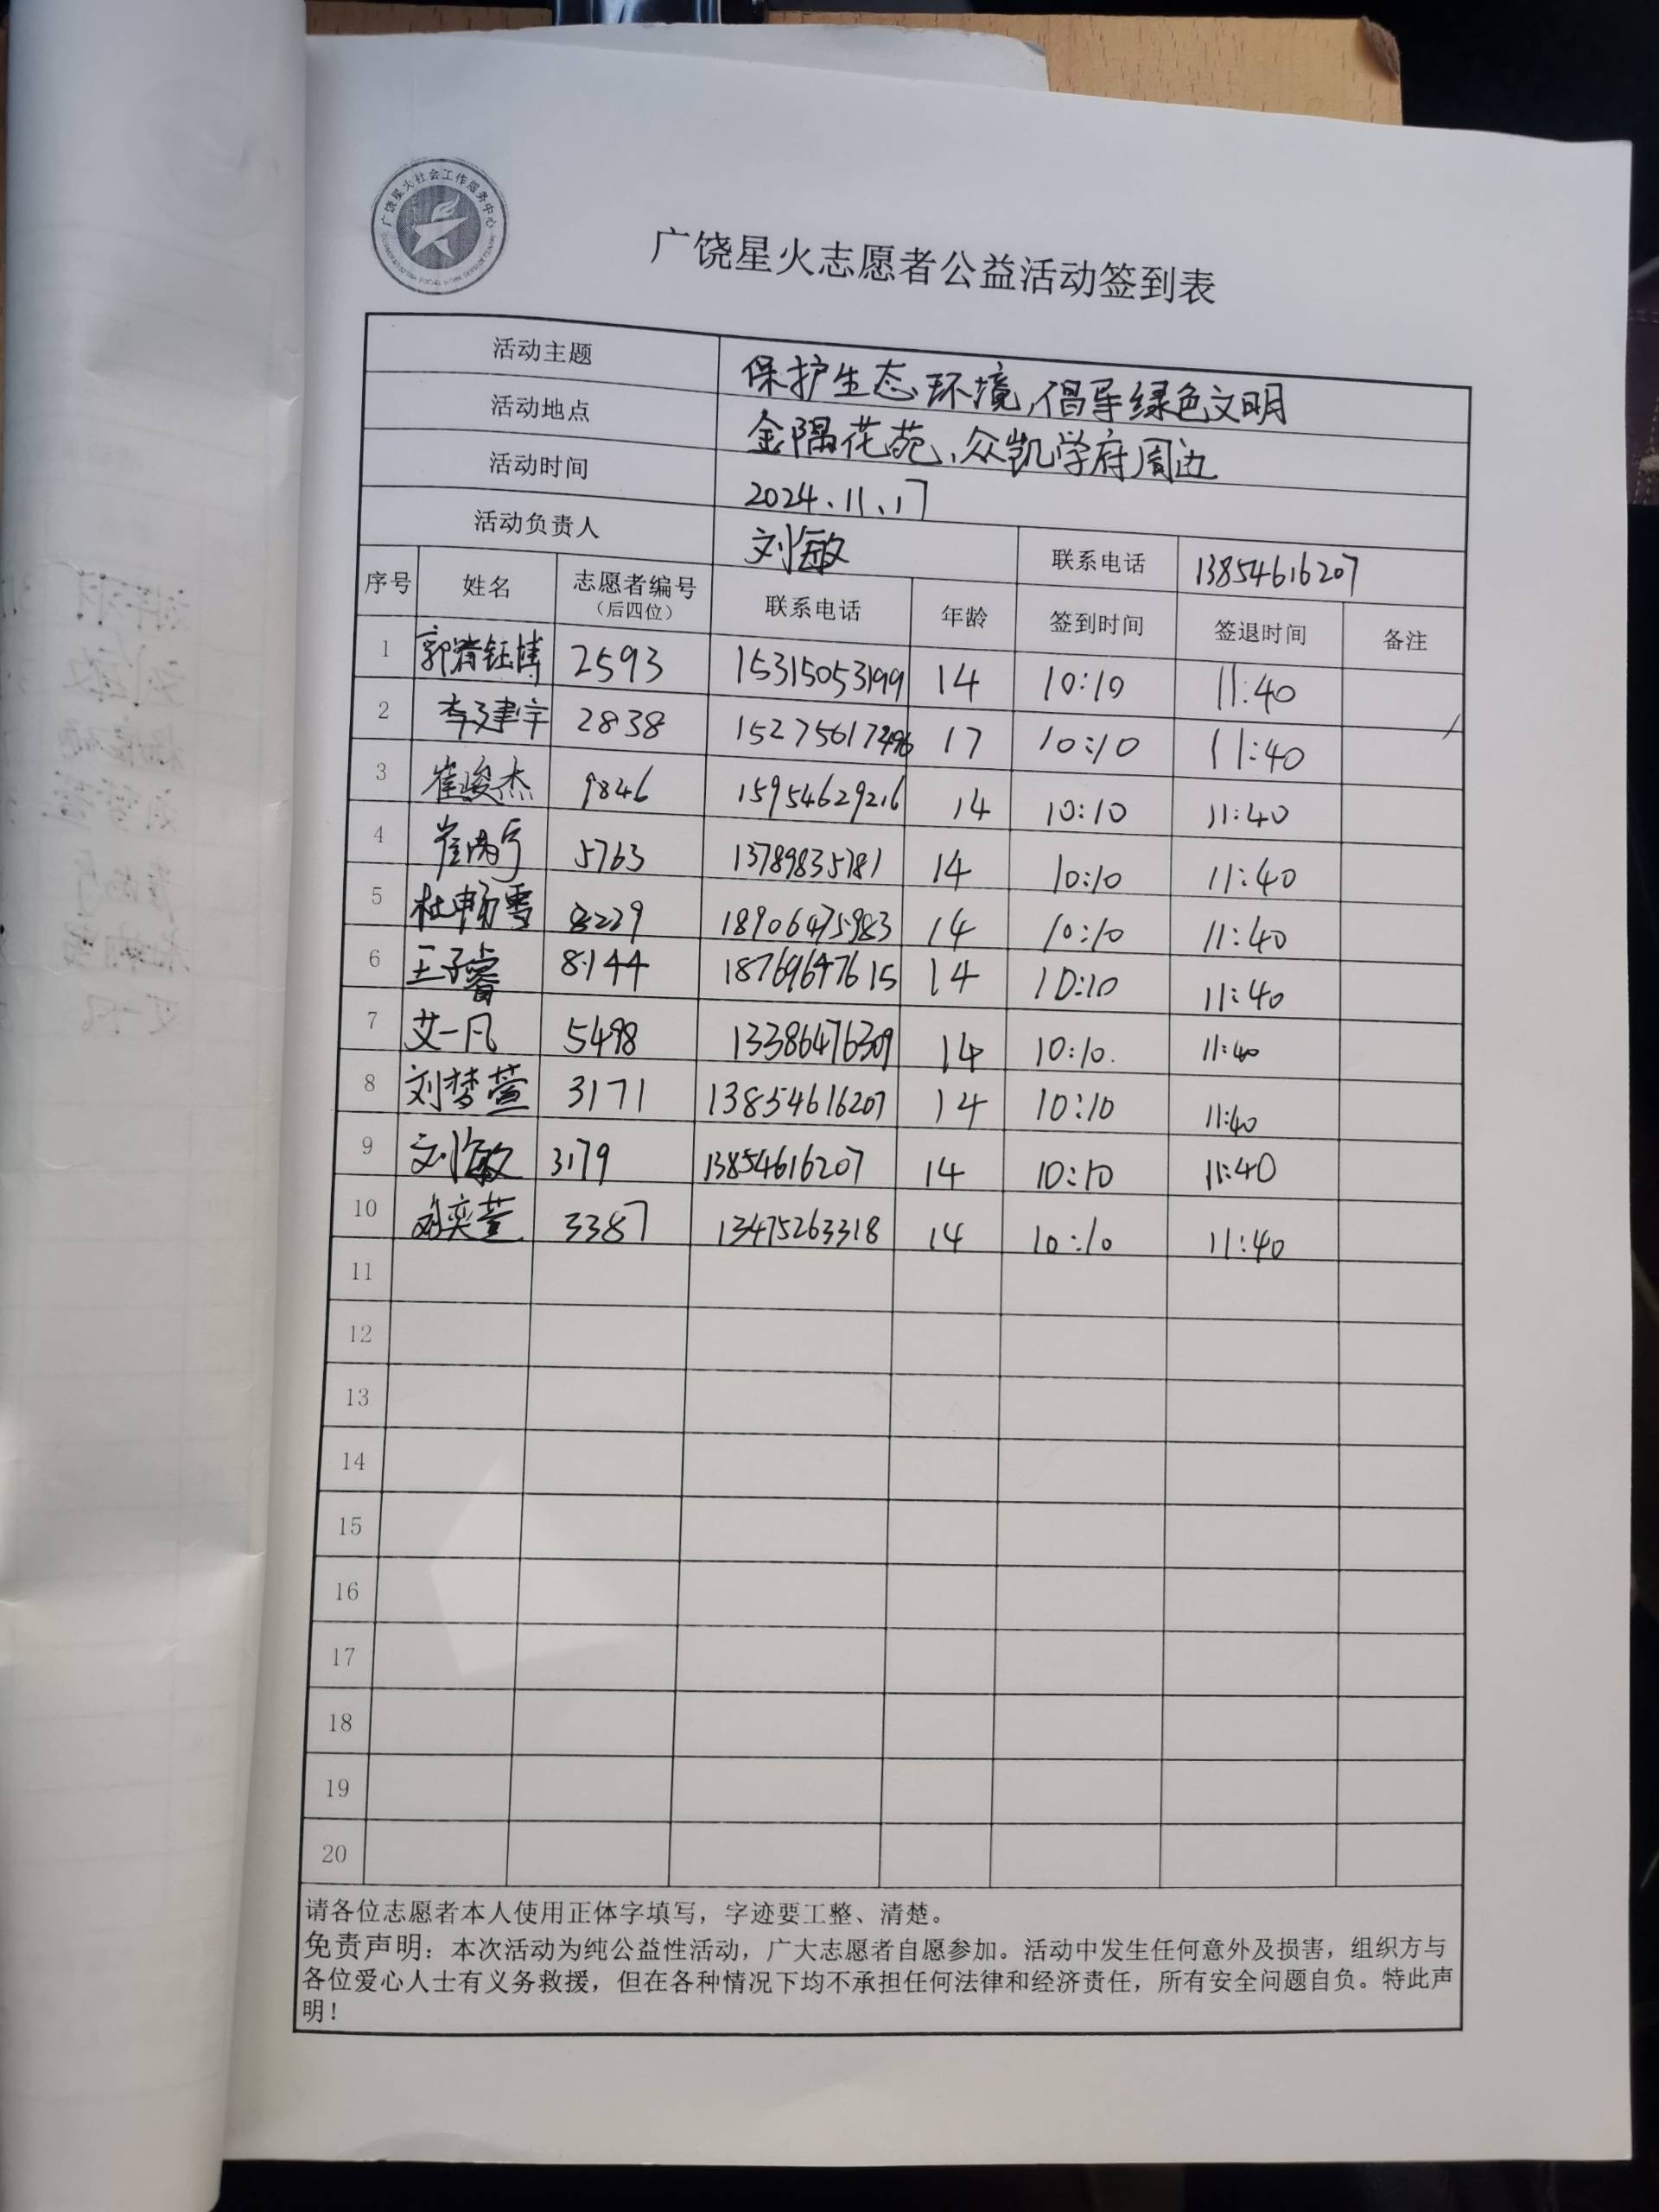 广饶星火社会工作服务中心
广饶星火志愿者公益活动签到表
活动主题 保护生态环境,倡导绿色文明
活动地点 金隅花苑、众凯学府周边
活动时间 2024.11.17
活动负责人 刘敏 联系电话 13854616207
序号 姓名 志愿者编号（后四位） 联系电话 年龄 签到时间 签退时间 备注
1 2593 15315053199 14 10:10 11:40
2 李建宇 2838 17 10:10 11:40
3 崔峻杰 9846 15954629216 14 10:10 11:40
4 5763 13789835781 14 10:10 11:40
5 杜畅雪 18906475983 14 10:10 11:40
6 王子睿 8144 18769647615 14 10:10 11:40
7 艾一凡 5498 13386476309 14 10:10. 11:40
8 刘梦萱 3171 13854616207 14 10:10 11:40
9 刘敏 3179 13854616207 14 10:10 11:40
10 刘奕萱 3387 13475263318 14 10:10 11:40
11
12
13
14
15
16
17
18
19
20
请各位志愿者本人使用正体字填写，字迹要工整、清楚。
免责声明：本次活动为纯公益性活动，广大志愿者自愿参加。活动中发生任何意外及损害，组织方与
各位爱心人士有义务救援，但在各种情况下均不承担任何法律和经济责任，所有安全问题自负。特此声
明！